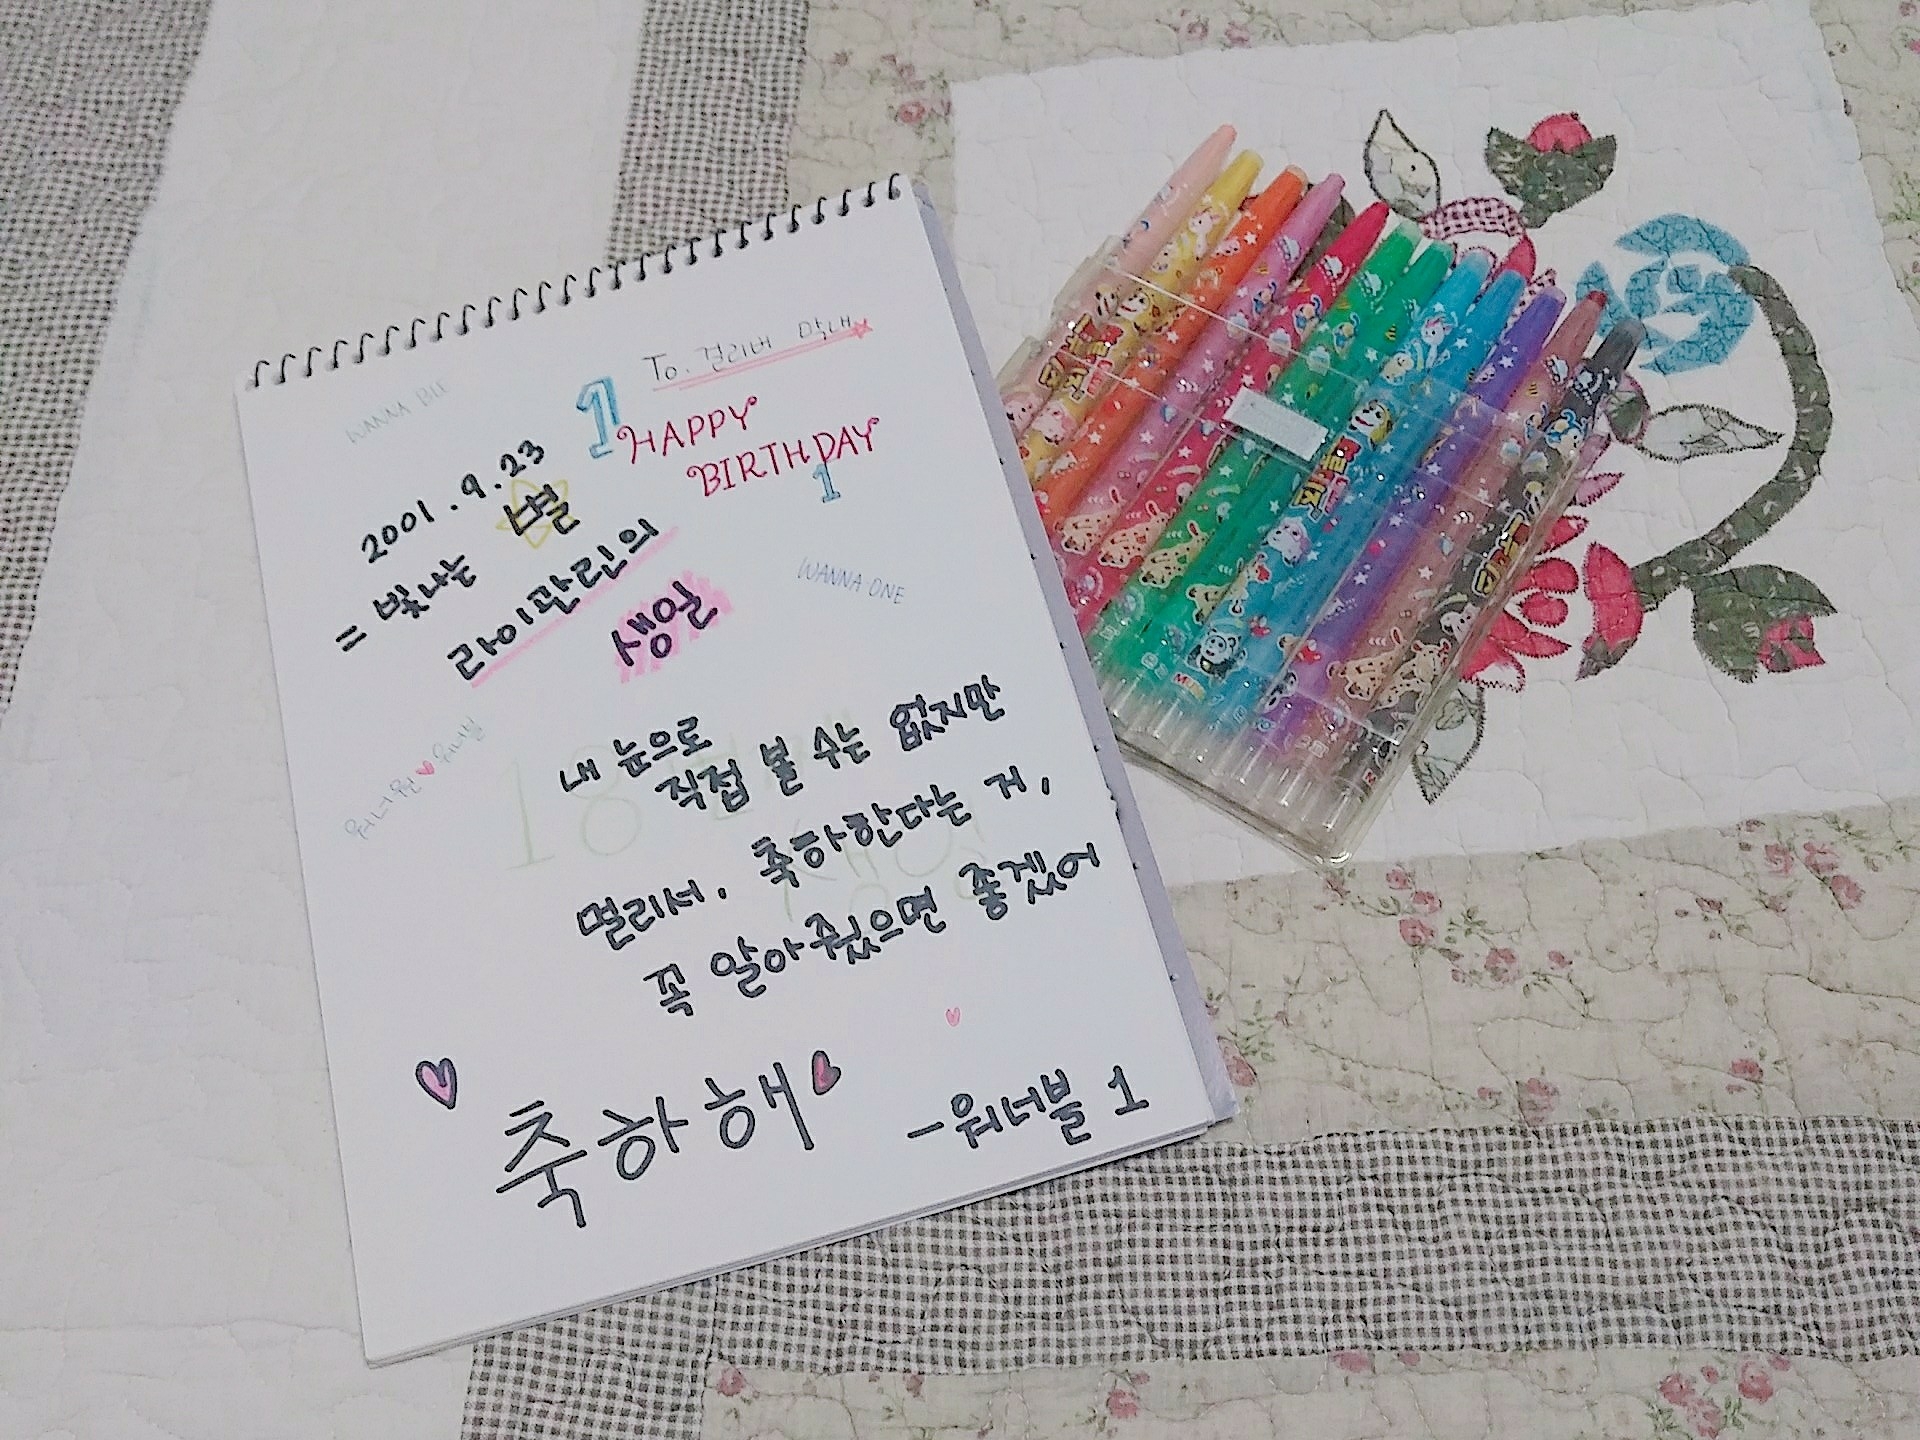 WANNA BLE
To. 걸리버 막내
1
HAPPY
BIRTHDAY
1
2001.9.23
= 빛나는 별
라이관린의
생일
WANNA ONE
워너원♥워너블
내 눈으로
직접 볼 수는 없지만
멀리서, 축하한다는 거,
꼭 알아줬으면 좋겠어
축하해
-워너블 1